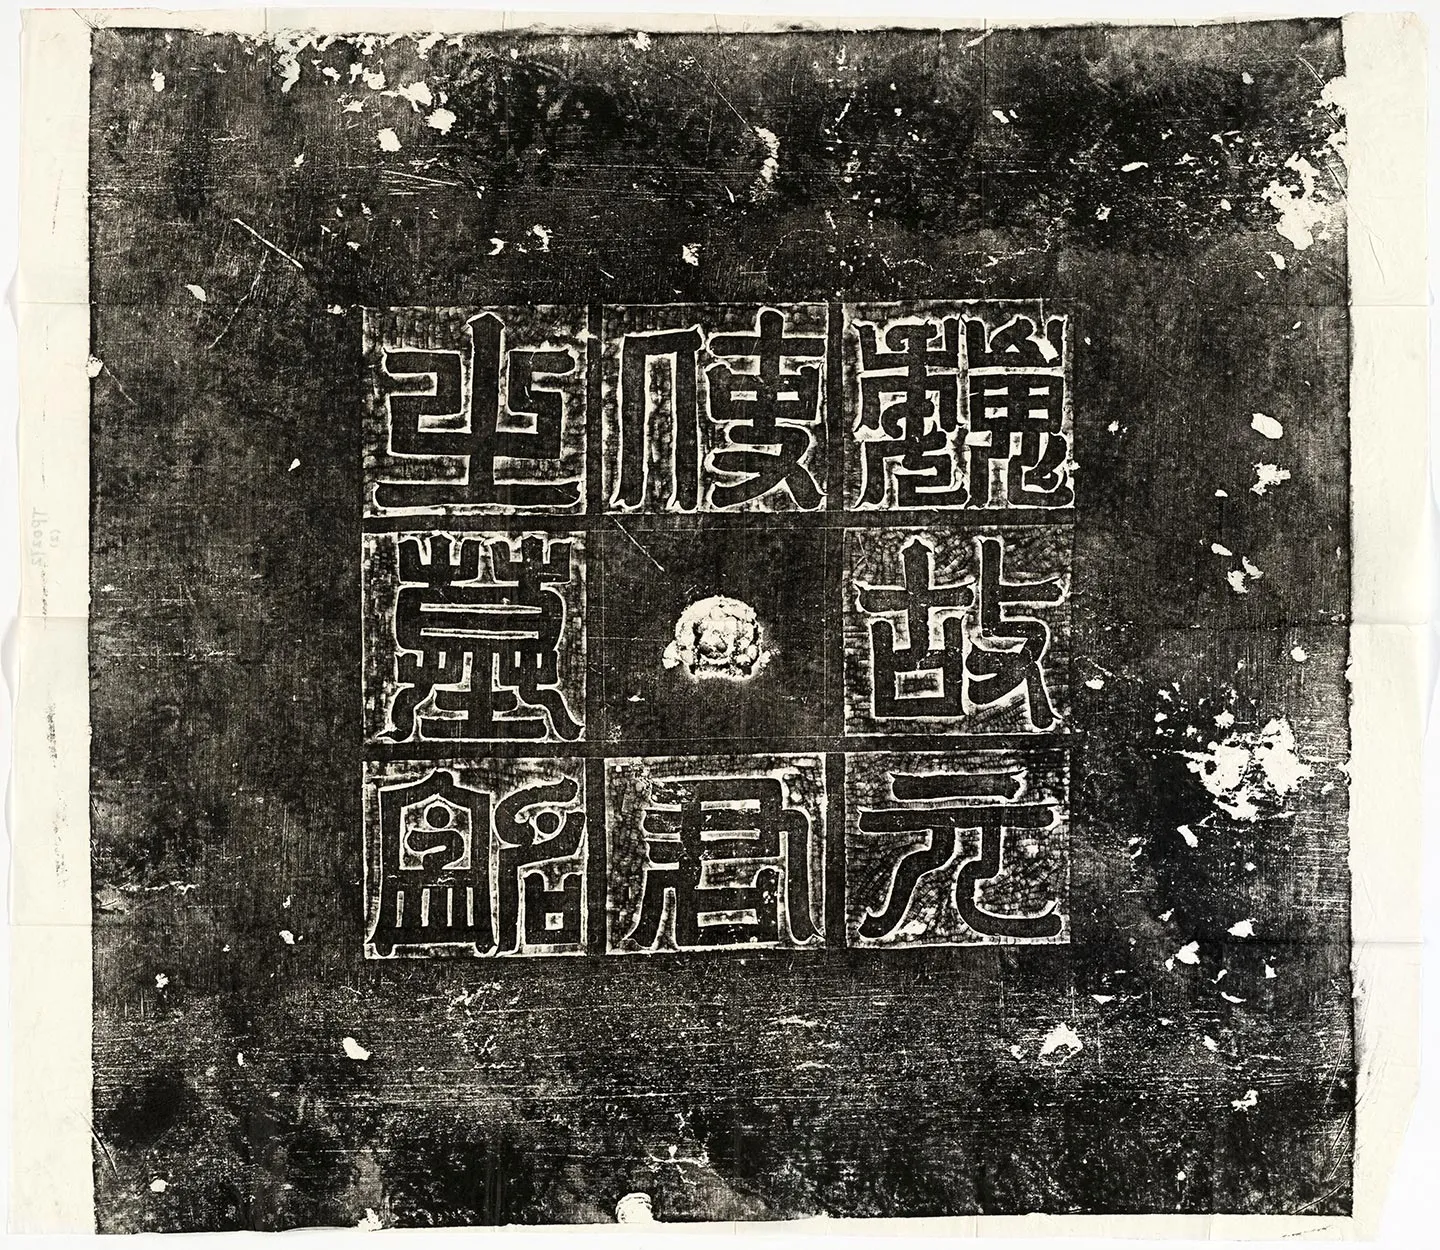 魏故元
使君
之墓銘